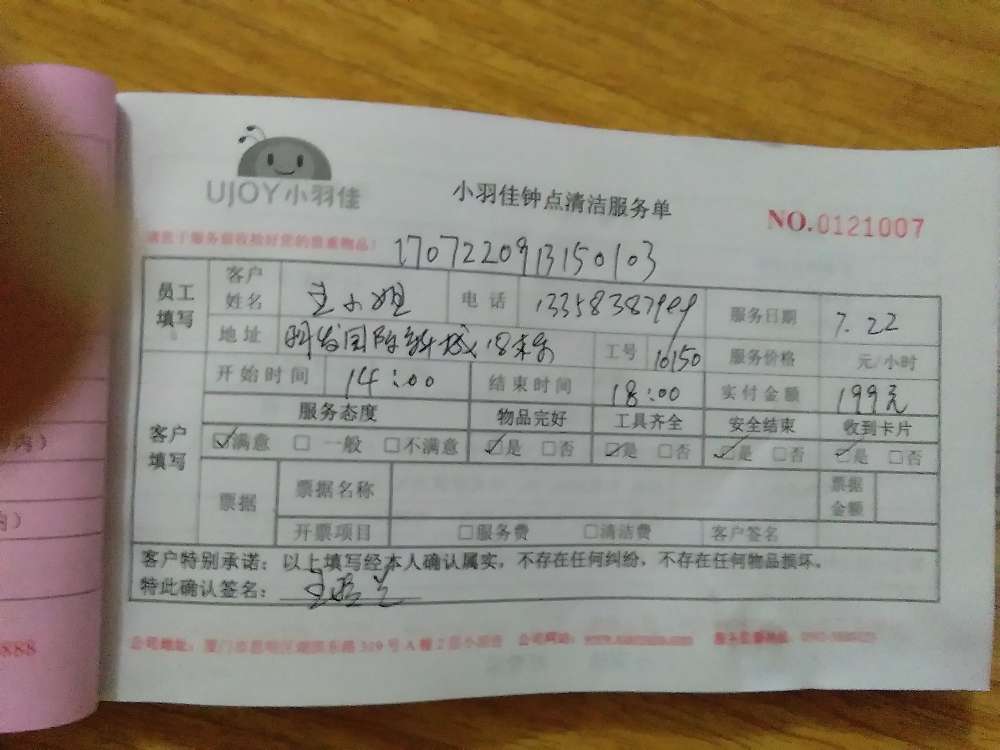 UJOY小羽佳
小羽佳钟点清洁服务单
NO.0121007
1707220913150103
员工填写 客户姓名 王小姐 电话 服务日期 7.22
地址 工号 10150 服务价格 元/小时
客户填写 开始时间 14:00 结束时间 18:00 实付金额 199元
服务态度 物品完好 工具齐全 安全结束 收到卡片
☑满意 □一般 □不满意 ☑是 □否 ☑是 □否 ☑是 □否 ☑是 □否
票据 票据名称 票据金额
开票项目 □服务费 □清洁费 客户签名
客户特别承诺：以上填写经本人确认属实，不存在任何纠纷，不存在任何物品损坏。
特此确认签名：
公司地址：
公司网站：
内）
内）
888